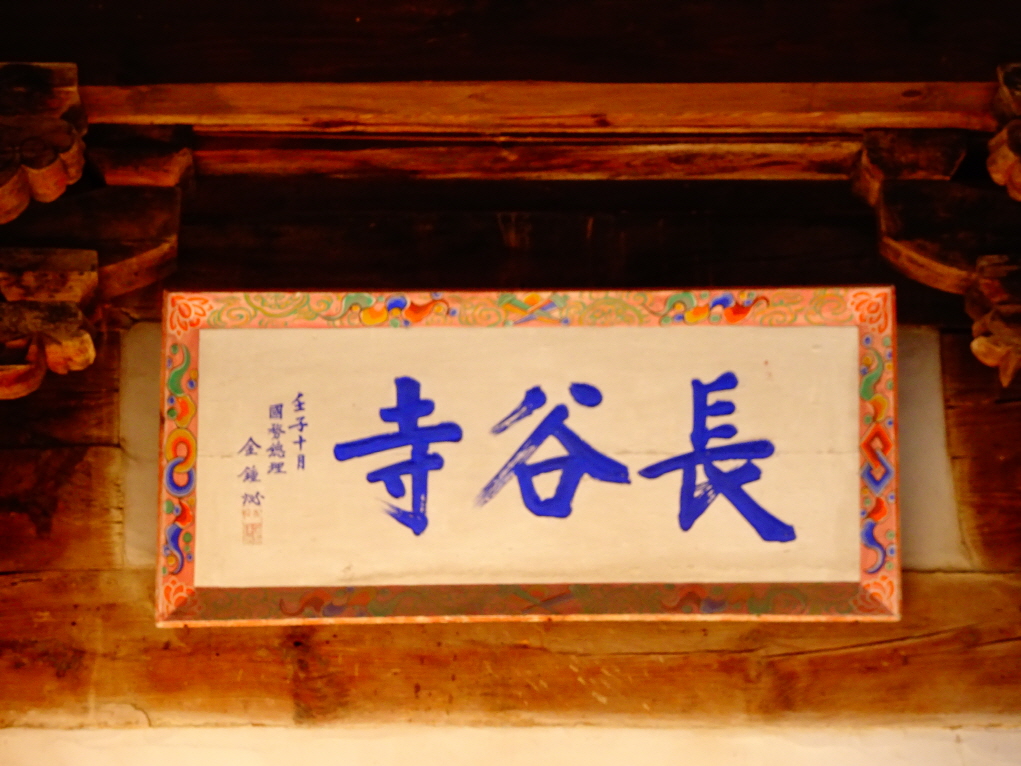 長谷寺
壬子十月
國務總理
金鍾泌